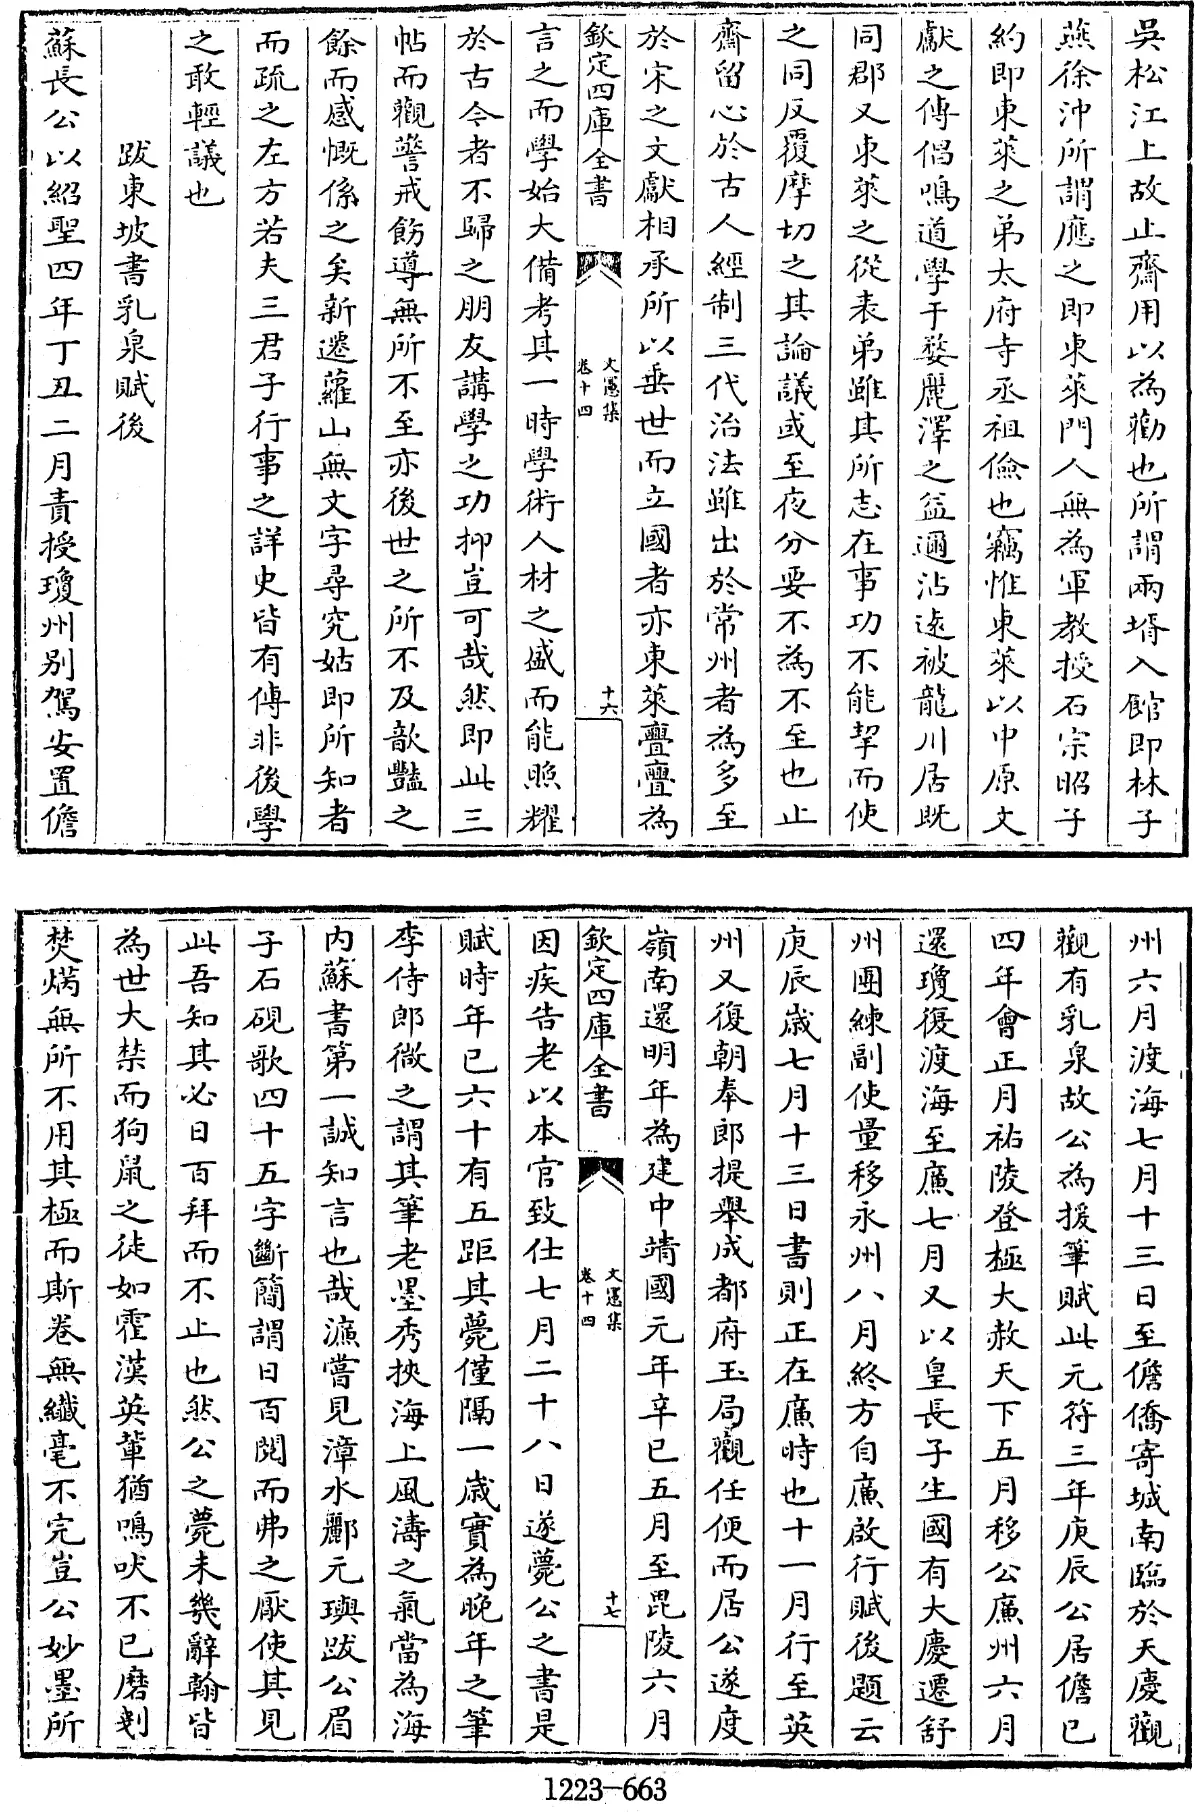 吳松江上故止齋用以為勸也所謂兩壻入館即林子
燕徐沖所謂應之即東萊門人無為軍教授石宗昭子
約即東萊之弟太府寺丞祖儉也竊惟東萊以中原文
獻之傳倡鳴道學于婺麗澤之益邇沾逺被龍川居既
同郡又東萊之從表弟雖其所志在事功不能挈而使
之同反覆摩切之其論議或至夜分要不為不至也止
齋留心於古人經制三代治法雖出於常州者為多至
於宋之文獻相承所以垂世而立國者亦東萊亹亹為
欽定四庫全書
文憲集
卷十四
十六
言之而學始大備考其一時學術人材之盛而能照耀
於古今者不歸之朋友講學之功抑豈可哉然即此三
帖而觀警戒飭導無所不至亦後世之所不及歆豔之
餘而感慨係之矣新遷蘿山無文字尋究姑即所知者
而疏之左方若夫三君子行事之詳史皆有傳非後學
之敢輕議也
跋東坡書乳泉賦後
蘇長公以紹聖四年丁丑二月責授瓊州別駕安置儋
州六月渡海七月十三日至儋僑寄城南臨於天慶觀
觀有乳泉故公為援筆賦此元符三年庚辰公居儋已
四年會正月祐陵登極大赦天下五月移公廉州六月
還瓊復渡海至廉七月又以皇長子生國有大慶遷舒
州團練副使量移永州八月終方自廉啟行賦後題云
庚辰歲七月十三日書則正在廉時也十一月行至英
州又復朝奉郎提舉成都府玉局觀任便而居公遂度
嶺南還明年為建中靖國元年辛巳五月至毘陵六月
欽定四庫全書
文憲集
卷十四
十七
因疾告老以本官致仕七月二十八日遂薨公之書是
賦時年已六十有五距其薨僅隔一歲實為晚年之筆
李侍郎微之謂其筆老墨秀挾海上風濤之氣當為海
內蘇書第一誠知言也哉濂嘗見漳水酈元璵跋公眉
子石硯歌四十五字斷簡謂日百閱而弗之厭使其見
此吾知其必日百拜而不止也然公之薨未幾辭翰皆
為世大禁而狗鼠之徒如霍漢英輩猶鳴吠不已磨剗
焚爇無所不用其極而斯卷無纖毫不完豈公妙墨所
1223-663